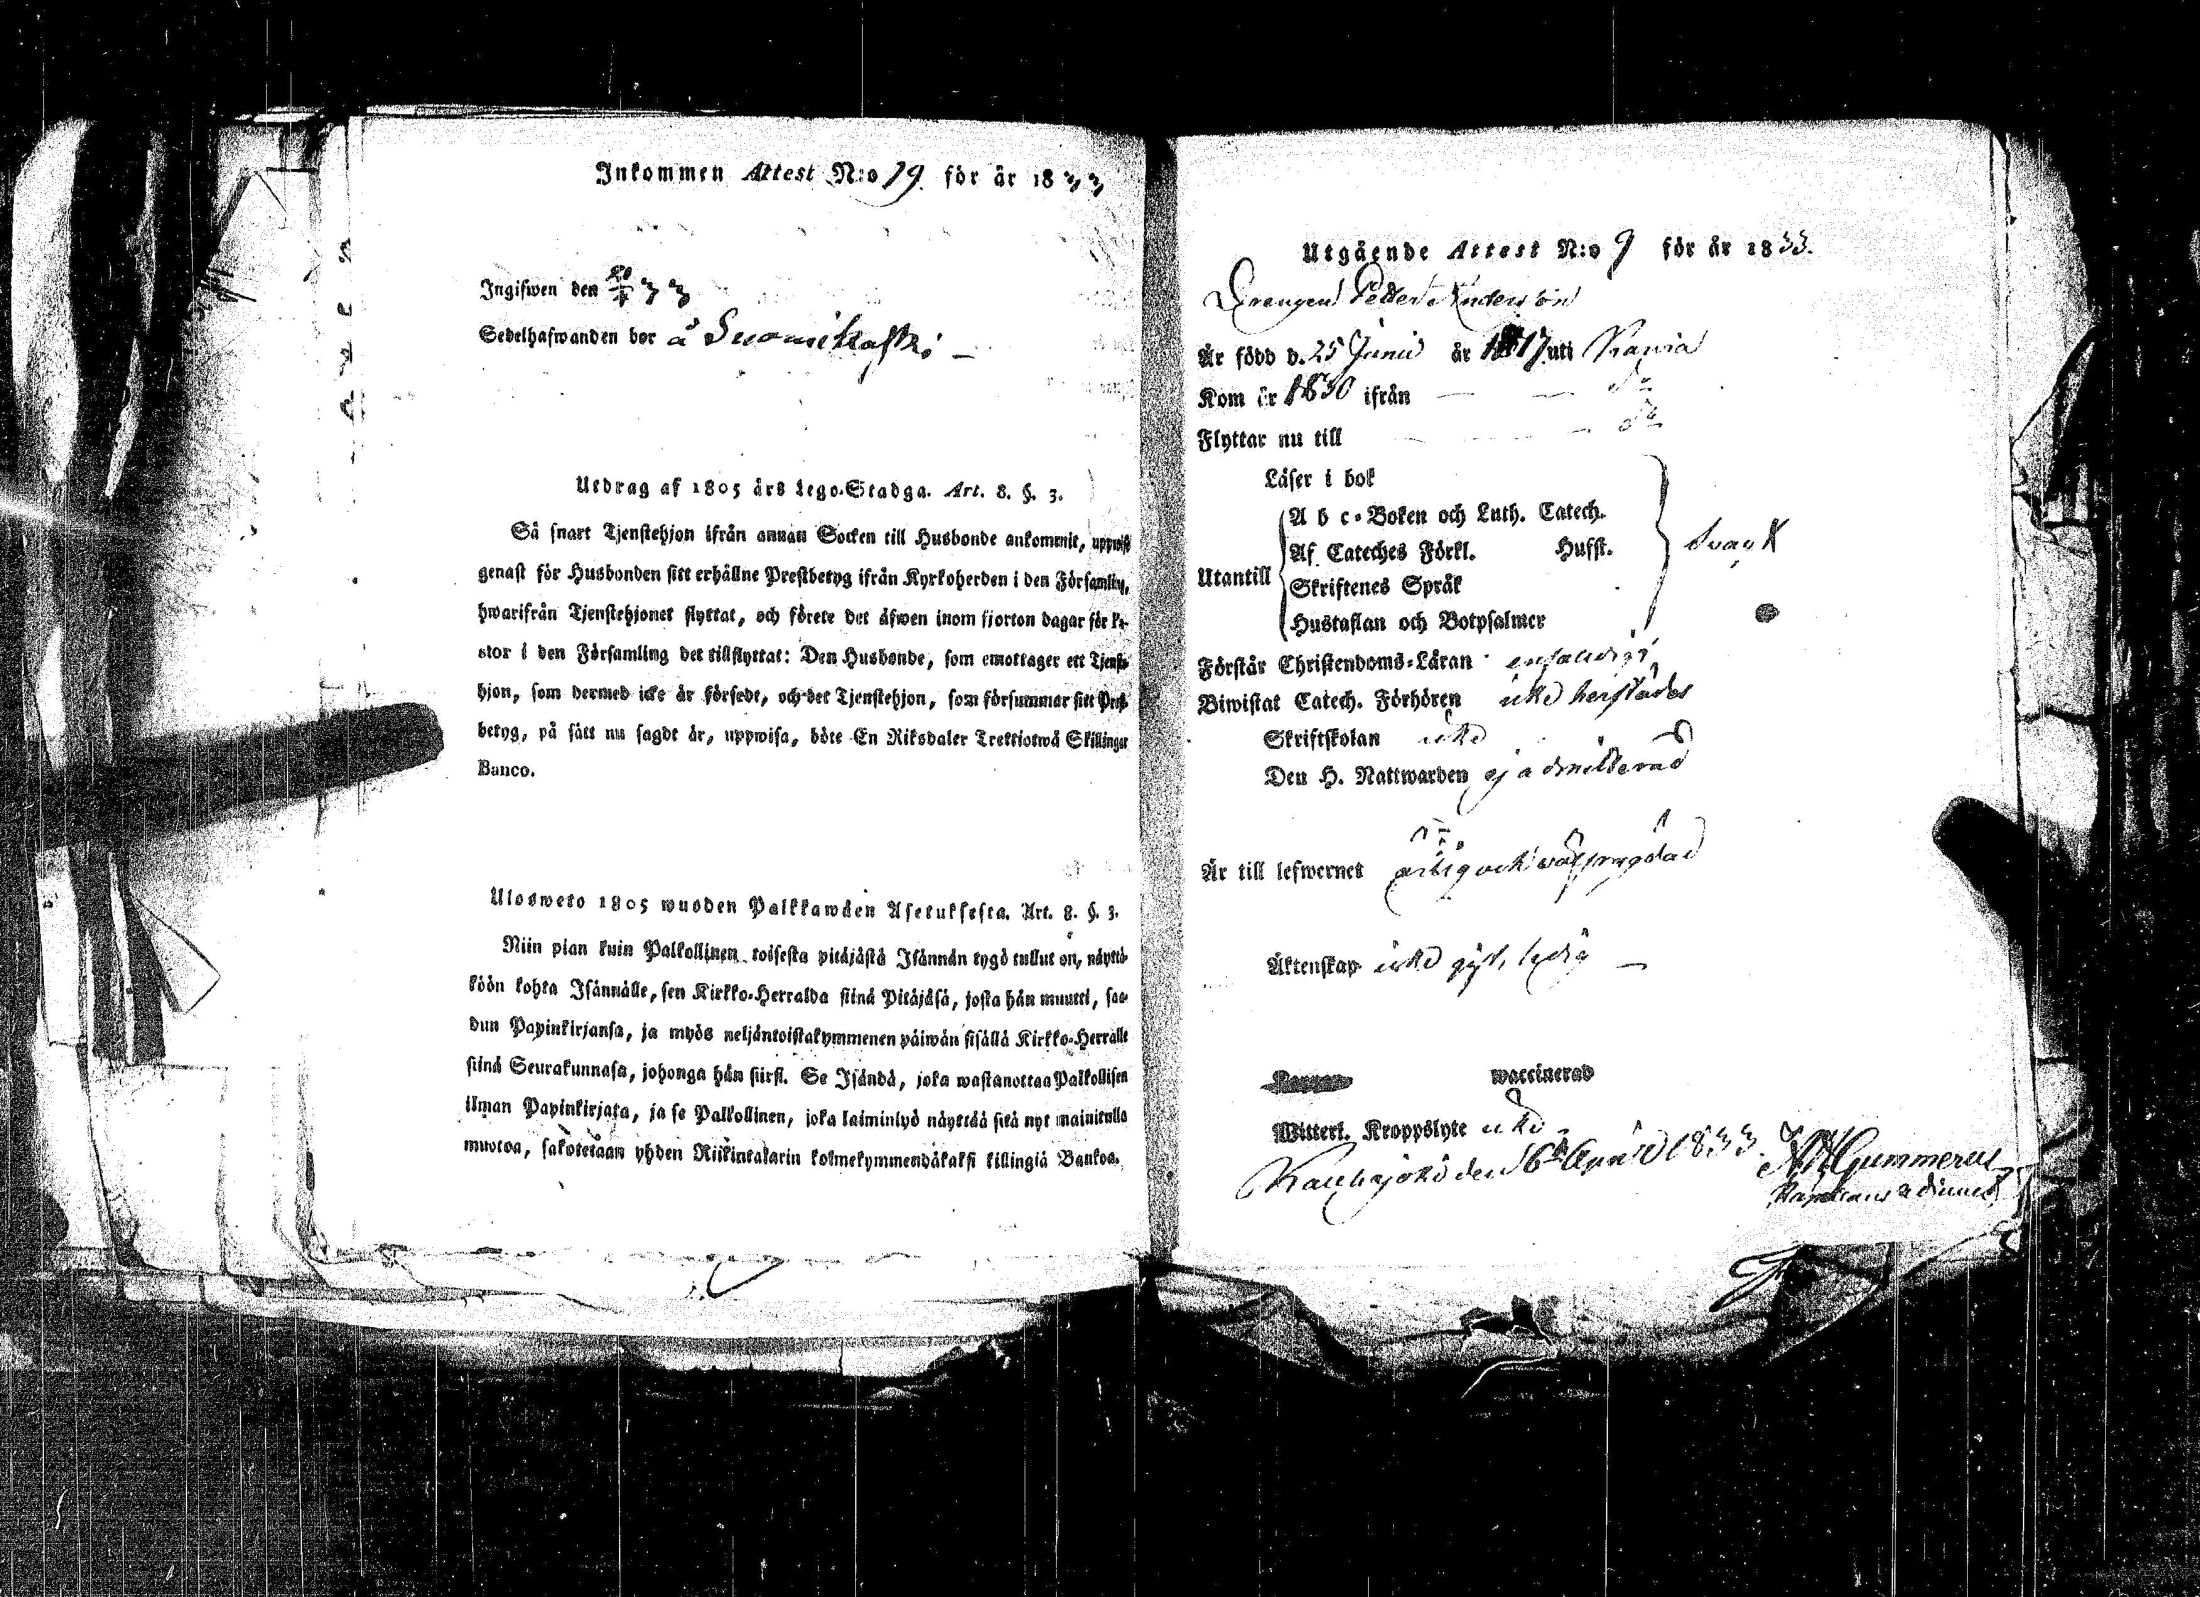 Inkommen Attest N:o 19. för år 1833
Ingifwen den 20/4 33
Sedelhafwanden bor å Suomikoski
Utdrag af 1805 års Lego-Stadga. Art. 8. §. 3.
Så snart Tjenstehjon ifrån annan Socken till Husbonde ankommit, uppwise
genast för Husbonden sitt erhållne Prestbetyg ifrån Kyrkoherden i den Församling,
hwarifrån Tjenstehjonet flyttat, och förete det äfwen inom fjorton dagar för Pa-
stor i den Församling det tillflyttat: Den Husbonde, som emottager ett Tjenste-
hjon, som dermed icke är försedt, och det Tjenstehjon, som försummar sitt Prest-
betyg, på sätt nu sagdt är, uppwisa, böte En Riksdaler Trettiotwå Skillingar
Banco.
Ulosweto 1805 wuoden Palkkawäen Asetuksesta. Art. 8. §. 3.
Niin pian kuin Palkollinen toisesta pitäjästä Isännän tygö tullut on, näyttä-
köön kohta Isännälle, sen Kirkko-Herralda siinä Pitäjäsä, josta hän muutti, saa-
dun Papinkirjansa, ja myös neljäntoistakymmenen päiwän sisällä Kirkko-Herralle
siinä Seurakunnasa, johonga hän siirsi. Se Isändä, joka wastanottaa Palkollisen
ilman Papinkirjata, ja se Palkollinen, joka laiminlyö näyttää sitä nyt mainitulla
muotoa, sakotetaan yhden Riikintalarin kolmekymmendäkaksi killingiä Bankoa.
Utgående Attest N:o 9 för år 1833.
Drengen Petter Anderson
Är född d. 25 Junii år 1817 uti Karvia
Kom år 1830 ifrån — — do
Flyttar nu till — — do
Läser i bok
A b c-Boken och Luth. Catech.
Af Cateches Förkl. Husst. svagt
Utantill Skriftenes Språk
Hustaflan och Botpsalmer
Förstår Christendoms-Läran enfaldigt
Biwistat Catech. Förhören icke herstädes
Skriftskolan icke
Den H. Nattwarden ej admitterad
Är till lefwernet artig och wälfrägdad
Äktenskap icke gift, ledig —
waccinerad
Witterl. Kroppslyte icke
Kauhajoki den 16de April 1833. Gummerus